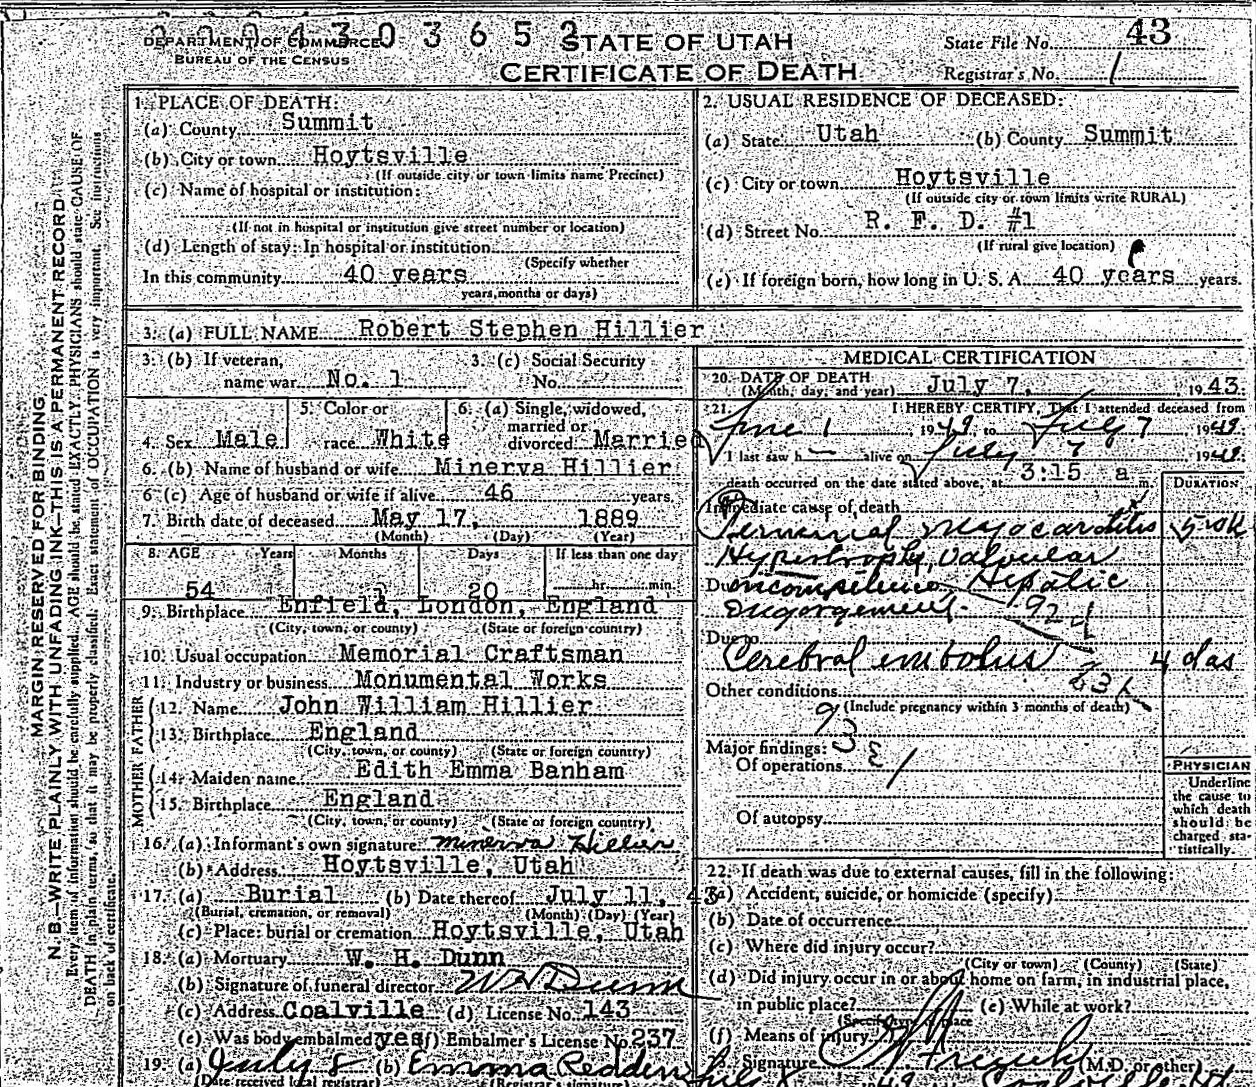 DEPARTMENT OF COMMERCE
BUREAU OF THE CENSUS
STATE OF UTAH
CERTIFICATE OF DEATH
State File No. 43
Registrar's No. 1
MARGIN RESERVED FOR BINDING
N. B.—WRITE PLAINLY WITH UNFADING INK—THIS IS A PERMANENT RECORD
Every item of information should be carefully supplied. AGE should be stated EXACTLY. PHYSICIANS should state CAUSE OF
DEATH in plain terms, so that it may be properly classified. Exact statement of OCCUPATION is very important. See instructions
on back of certificate.
1. PLACE OF DEATH:
(a) County Summit
(b) City or town Hoytsville
(If outside city or town limits name Precinct)
(c) Name of hospital or institution:
(If not in hospital or institution give street number or location)
(d) Length of stay: In hospital or institution
(Specify whether
In this community 40 years
years, months or days)
2. USUAL RESIDENCE OF DECEASED:
(a) State Utah (b) County Summit
(c) City or town Hoytsville
(If outside city or town limits write RURAL)
(d) Street No. R. F. D. #1
(If rural give location)
(e) If foreign born, how long in U. S. A. 40 years years.
3. (a) FULL NAME Robert Stephen Hillier
3. (b) If veteran,
name war No. 1
3. (c) Social Security
No.
4. Sex Male
5. Color or
race White
6. (a) Single, widowed,
married or
divorced Married
6. (b) Name of husband or wife Minerva Hillier
6 (c) Age of husband or wife if alive 46 years.
7. Birth date of deceased May 17, 1889
(Month) (Day) (Year)
8. AGE Years Months Days If less than one day
54 1 20 hr. min.
9. Birthplace Enfield, London, England
(City, town, or county) (State or foreign country)
10. Usual occupation Memorial Craftsman
11. Industry or business Monumental Works
FATHER
12. Name John William Hillier
13. Birthplace England
(City, town, or county) (State or foreign country)
MOTHER
14. Maiden name Edith Emma Banham
15. Birthplace England
(City, town, or county) (State or foreign country)
16. (a) Informant's own signature Minerva Hillier
(b) Address Hoytsville, Utah
17. (a) Burial (b) Date thereof July 11, 43
(Burial, cremation, or removal) (Month) (Day) (Year)
(c) Place: burial or cremation Hoytsville, Utah
18. (a) Mortuary W. H. Dunn
(b) Signature of funeral director W H Dunn
(c) Address Coalville (d) License No. 143
(e) Was body embalmed yes (f) Embalmer's License No. 237
19. (a) July 8 (b) Emma Redden
(Date received local registrar) (Registrar's signature)
MEDICAL CERTIFICATION
20. DATE OF DEATH
(Month, day, and year) July 7, 1943
21. I HEREBY CERTIFY, That I attended deceased from
June 1 19 to July 7 19
I last saw h alive on July 7 19
death occurred on the date stated above, at 3:15 a m.
DURATION
Immediate cause of death
Terminal myocarditis 5 wk
Hypertrophy, valvular
Due incompetence Hepatic
engorgement. 92 d
Due to
Cerebral embolus 4 das
Other conditions
(Include pregnancy within 3 months of death)
93
Major findings:
Of operations
Of autopsy
PHYSICIAN
Underline
the cause to
which death
should be
charged sta-
tistically.
22. If death was due to external causes, fill in the following:
(a) Accident, suicide, or homicide (specify)
(b) Date of occurrence
(c) Where did injury occur?
(City or town) (County) (State)
(d) Did injury occur in or about home on farm, in industrial place,
in public place? (e) While at work?
(f) Means of injury
Signature (M.D. or other)